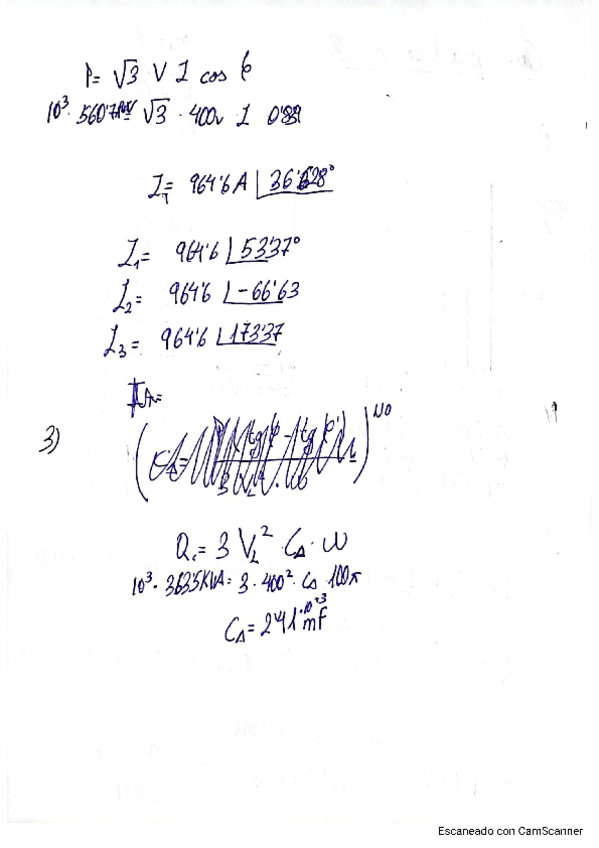 P= √3 V I cos φ
10³· 560'7 √3 · 400v I 0'89
I_T= 964'6 A ∟36'628°
I₁= 964'6 ∟53'37°
I₂= 964'6 ∟-66'63
I₃= 964'6 ∟173'37
IA=
3)
NO
Q_c= 3 V_L² · C_Δ · ω
10³· 363'5 KVA= 3·400²· C_Δ 100π
C_Δ= 2'41·10⁺³ mf
Escaneado con CamScanner